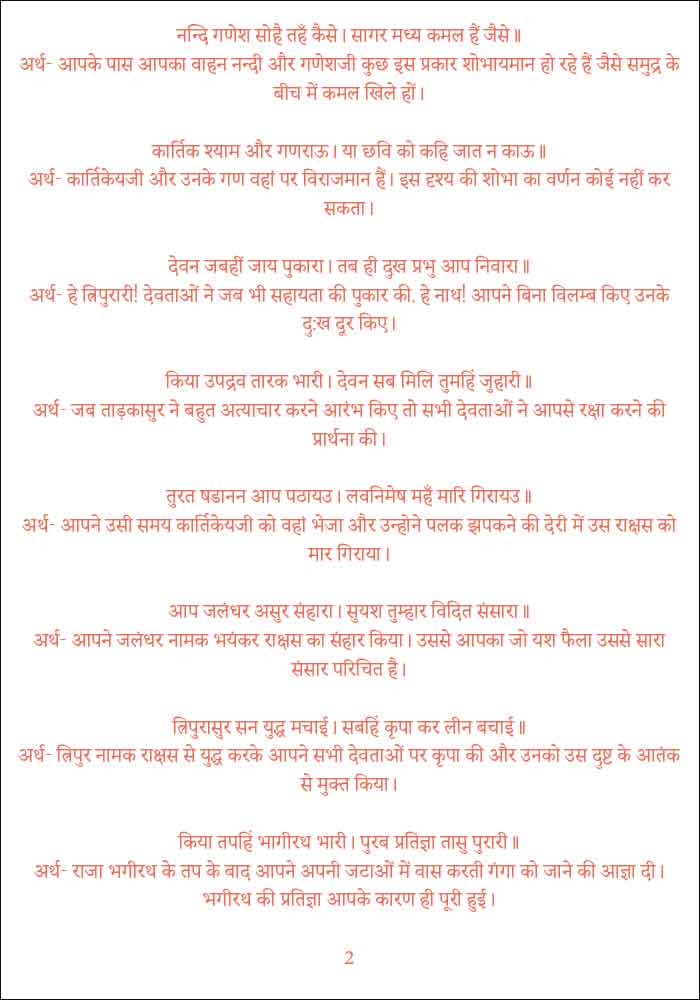 नन्दि गणेश सोहै तहँ कैसे। सागर मध्य कमल हैं जैसे॥
अर्थ- आपके पास आपका वाहन नन्दी और गणेशजी कुछ इस प्रकार शोभायमान हो रहे हैं जैसे समुद्र के
बीच में कमल खिले हों।
कार्तिक श्याम और गणराऊ। या छवि को कहि जात न काऊ॥
अर्थ- कार्तिकेयजी और उनके गण वहां पर विराजमान हैं। इस दृश्य की शोभा का वर्णन कोई नहीं कर
सकता।
देवन जबहीं जाय पुकारा। तब ही दुख प्रभु आप निवारा॥
अर्थ- हे त्रिपुरारी! देवताओं ने जब भी सहायता की पुकार की, हे नाथ! आपने बिना विलम्ब किए उनके
दु:ख दूर किए।
किया उपद्रव तारक भारी। देवन सब मिलि तुमहिं जुहारी॥
अर्थ- जब ताड़कासुर ने बहुत अत्याचार करने आरंभ किए तो सभी देवताओं ने आपसे रक्षा करने की
प्रार्थना की।
तुरत षडानन आप पठायउ। लवनिमेष महँ मारि गिरायउ॥
अर्थ- आपने उसी समय कार्तिकेयजी को वहां भेजा और उन्होने पलक झपकने की देरी में उस राक्षस को
मार गिराया।
आप जलंधर असुर संहारा। सुयश तुम्हार विदित संसारा॥
अर्थ- आपने जलंधर नामक भयंकर राक्षस का संहार किया। उससे आपका जो यश फैला उससे सारा
संसार परिचित है।
त्रिपुरासुर सन युद्ध मचाई। सबहिं कृपा कर लीन बचाई॥
अर्थ- त्रिपुर नामक राक्षस से युद्ध करके आपने सभी देवताओं पर कृपा की और उनको उस दुष्ट के आतंक
से मुक्त किया।
किया तपहिं भागीरथ भारी। पुरब प्रतिज्ञा तासु पुरारी॥
अर्थ- राजा भगीरथ के तप के बाद आपने अपनी जटाओं में वास करती गंगा को जाने की आज्ञा दी।
भगीरथ की प्रतिज्ञा आपके कारण ही पूरी हुई।
2